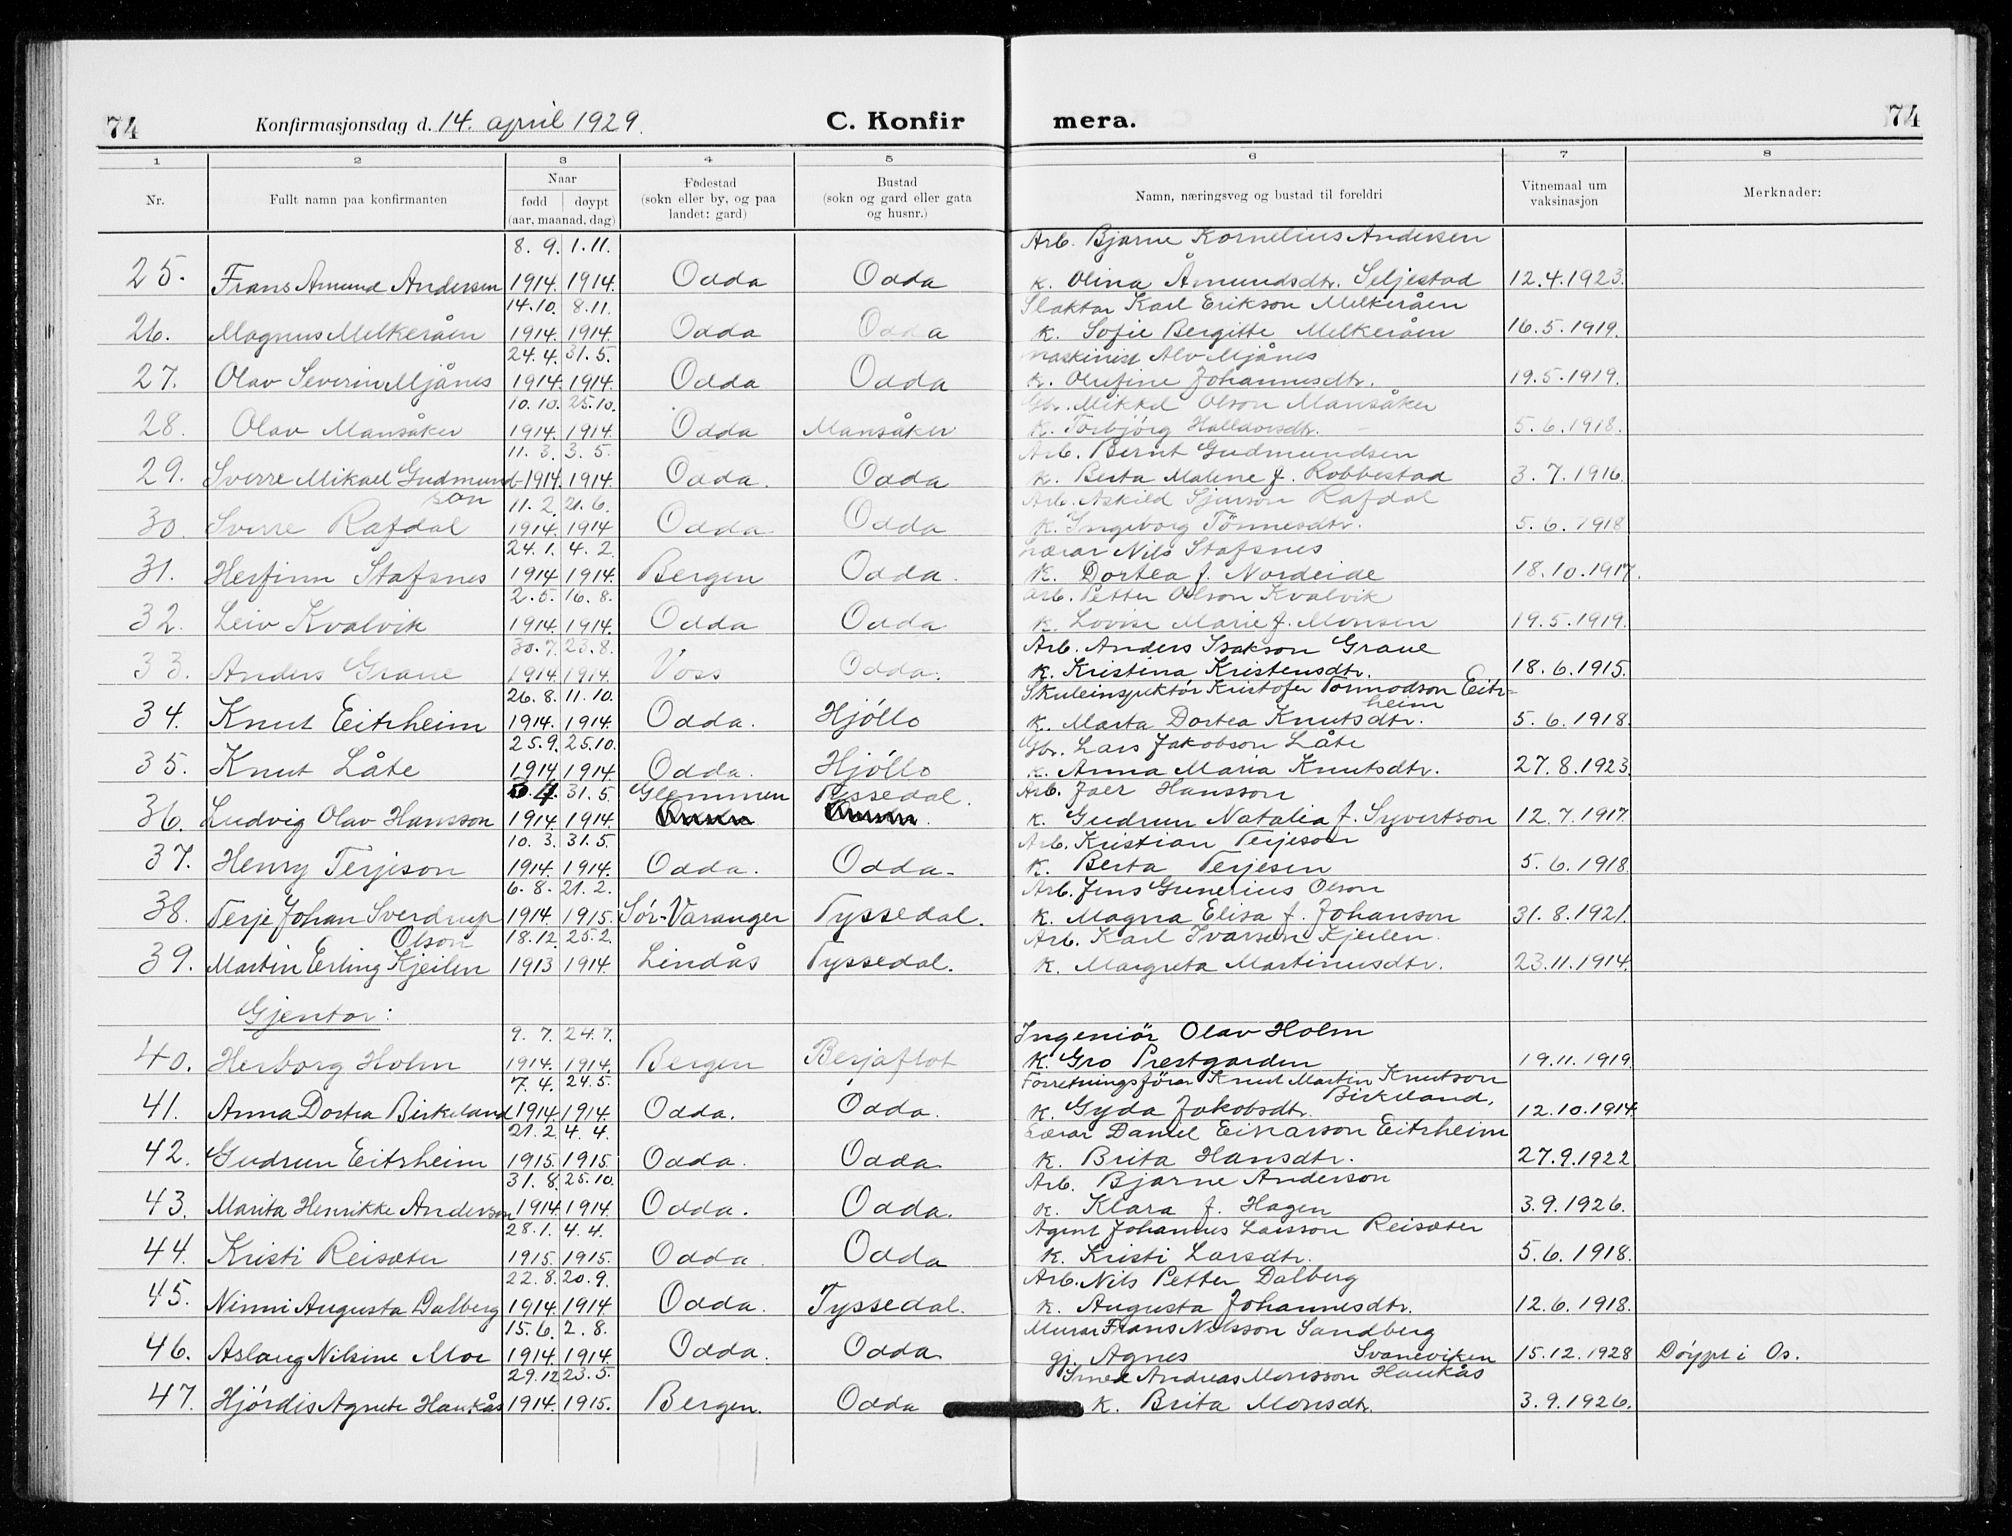 74 Konfirmasjonsdag d. 14. april 1929. C. Konfir mera. 74
1 2 3 4 5 6 7 8
Nr. Fullt namn paa konfirmanten Naar Fødestad Bustad Namn, næringsveg og bustad til foreldri Vitnemaal um Merknader:
fødd døypt (sokn eller by, og paa (sokn og gard eller gata vaksinasjon
(aar, maanad, dag) landet: gard) og husnr.)
8. 9. 1. 11. Arb. Bjarne Kornelius Andersen
25. Frans Amund Andersen 1914. 1914. Odda Odda k. Olina Åmundsdtr. Seljestad 12.4.1923.
14.10. 8.11. Slaktar Karl Erikson Melkeråen
26. Magnus Melkeråen 1914. 1914. Odda Odda k. Sofie Bergitte Melkeråen 16.5.1919.
24.4. 31.5. Maskinist Alv Mjånes
27. Olav Severin Mjånes 1914. 1914. Odda Odda k. Olufine Johannesdtr. 19.5.1919.
10.10. 25.10. Gbr. Mikkel Olson Mansåker
28. Olav Mansåker 1914. 1914. Odda Mansåker k. Torbjörg Halldorsdtr. 5.6.1918.
11. 3. 3. 5. Arb. Bernt Gudmundsen
29. Sverre Mikael Gudmund- 1914. 1914. Odda. Odda k. Berta Malene f. Robbestad 3.7.1916.
son 11. 2. 21. 6. Arb. Askild Sjurson Rafdal
30. Sverre Rafdal 1914. 1914 Odda Odda k. Ingeborg Tönnesdtr. 5.6.1918
24. 1. 4. 2. Lærar Nils Stafsnes
31. Herfinn Stafsnes 1914 1914. Bergen Odda. k. Dortea f. Nordeide 18.10.1917.
2.5. 16.8. Arb. Petter Olson Kvalvik
32. Leiv Kvalvik 1914. 1914. Odda Odda k. Lovise Marie f. Monsen 19.5.1919.
30.7. 23.8. Arb. Anders Isakson Graue
33. Anders Graue 1914. 1914. Voss Odda. k. Kristina Kristensdtr. 18.6.1915.
26. 8. 11. 10. Skuleinspektør Kristofer Tormodson Eitr-
heim
34. Knut Eitrheim 1914. 1914. Odda. Hjóllo k. Marta Dortea Knutsdtr. 5.6.1918.
25.9. 25.10. Gbr. Lars Jakobson Låte
35. Knut Låte 1914 1914. Odda. Hjóllo k. Anna Maria Knutsdtr. 27.8.1923.
31.5. Glemmen Tyssedal. Arb. Joer Hansson
36. Ludvig Olav Hansson 1914. 1914. k. Gudrun Natalia f. Syvertson 12.7.1917.
10. 3. 31.5. Arb. Kristian Terjeson
37. Henry Terjeson 1914. 1914. Odda. Odda. k. Berta Terjesen 5.6.1918.
6. 8. 21. 2. Arb. Jens Gunerius Olson
38. Terje Johan Sverdrup 1914. 1915. Sør-Varanger Tyssedal. k. Magna Elisa f. Johanson 31.8.1921.
Olson 18.12. 25.2. Arb. Karl Ivarsen Kjeilen.
39. Martin Erling Kjeilen 1913 1914. Lindås Tyssedal. k. Margreta Martinusdtr. 23.11.1914.
Gjentor:
9. 7. 24.7. Ingeniör Olav Holm
40. Herborg Holm 1914. 1914. Bergen Berjaflot k. Gro Prestgarden 19.11.1919.
7. 4. 24.5. Forretningsförar Knut Martin Knutson
Birkeland,
41. Anna Dortea Birkeland 1914. 1914. Odda. Odda. k. Gyda Jakobsdtr. 12.10.1914.
21. 2. 4. 4. Lærar Daniel Einarson Eitrheim
42. Gudrun Eitrheim 1915. 1915. Odda. Odda k. Brita Hansdtr. 27.9.1922
31. 8. 25.10. Arb. Bjarne Anderson
43. Marita Henrikke Anderson 1914. 1914. Odda. Odda. k. Klara f. Hagen 3.9.1926.
28.1. 4.4. Agent Johannes Larsson Reisæter
44. Kristi Reisæter 1915. 1915. Odda Odda k. Kristi Larsdtr. 5.6.1918.
22.8. 20.9. Arb. Nils Petter Dalberg
45. Ninni Augusta Dalberg 1914. 1914 Odda. Tyssedal. k. Augusta Johannesdtr. 12.6.1918.
15.6. 2.8. Murar Frans Nilsson Sandberg
46. Aslaug Nilsine Moe 1914. 1914. Odda. Odda gj. Agnes Svaneviken 15.12.1928 Döypt i Os.
29.12. 23.5. Smed Andreas Monsson Haukås
47. Hjördis Agnete Haukås 1914. 1915. Bergen. Odda k. Brita Monsdtr. 3.9.1926.